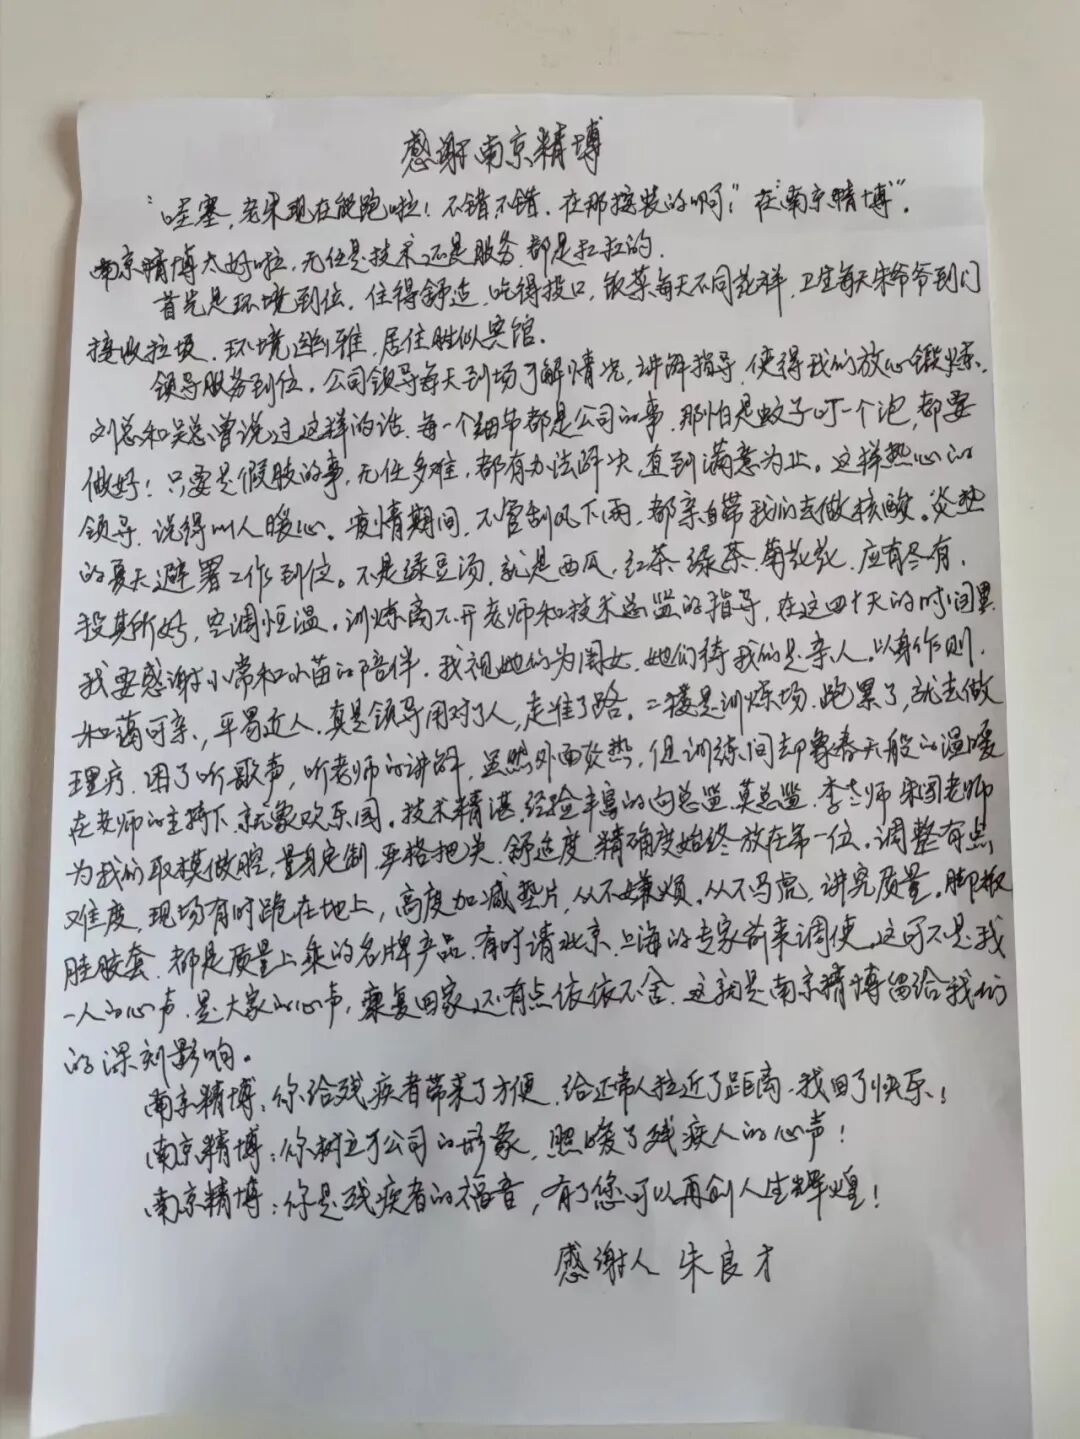 感谢南京精博
“哇塞,老朱现在能跑啦!不错不错.在那接装的啊?”在“南京精博”.
南京精博太好啦.无任是技术还是服务.都是扛扛的.
首先是环境到位.住得舒适.吃得投口,饭菜每天不同花样.卫生每天朱爷爷到门
接收垃圾.环境幽雅.居住胜似宾馆.
领导服务到位.公司领导每天到场了解情况.讲解指导.使得我们放心锻炼.
刘总和吴总曾说过这样的话.每一个细节都是公司的事.那怕是蚊子叮一个泡,都要
做好!只要是假肢的事.无任多难.都有办法解决.直到满意为止。这样热心的
领导.说得叫人暖心。疫情期间.不管刮风下雨.都亲自带我们去做核酸。炎热
的夏天避署工作到位。不是绿豆汤.就是西瓜.红茶.绿茶.菊花花.应有尽有.
投其所好,空调恒温。训炼离不开老师和技术总监的指导,在这四十天的时间里.
我要感谢小常和小苗的陪伴.我视她们为闺女.她们待我们是亲人。以身作则.
和蔼可亲,平易近人.真是领导用对了人,走准了路。二楼是训炼场.跑累了,就去做
理疗.困了听歌声,听老师的讲解,虽然外面炎热,但训练间却象春天般的温暖
在老师的主持下.就象欢乐园。技术精湛.经验丰富的向总监.莫总监.李老师朱国老师
为我们取模做腔,量身定制.严格把关.舒适度.精确度始终放在第一位。调整有点
难度.现场有时跪在地上,高度加减垫片,从不嫌烦.从不马虎.讲究质量。脚板
硅胶套.都是质量上乘的名牌产品.有时请北京.上海的专家前来调使.这可不是我
一人的心声.是大家的心声,康复回家还有点依依不舍.这就是南京精博留给我们
的深刻影响。
南京精博:你给残疾者带来了方便.给正常人拉近了距离.找回了快乐!
南京精博:你树立了公司的形象.照暖了残疾人的心声!
南京精博:你是残疾者的福音,有了您可以再创人生辉煌!
感谢人 朱良才